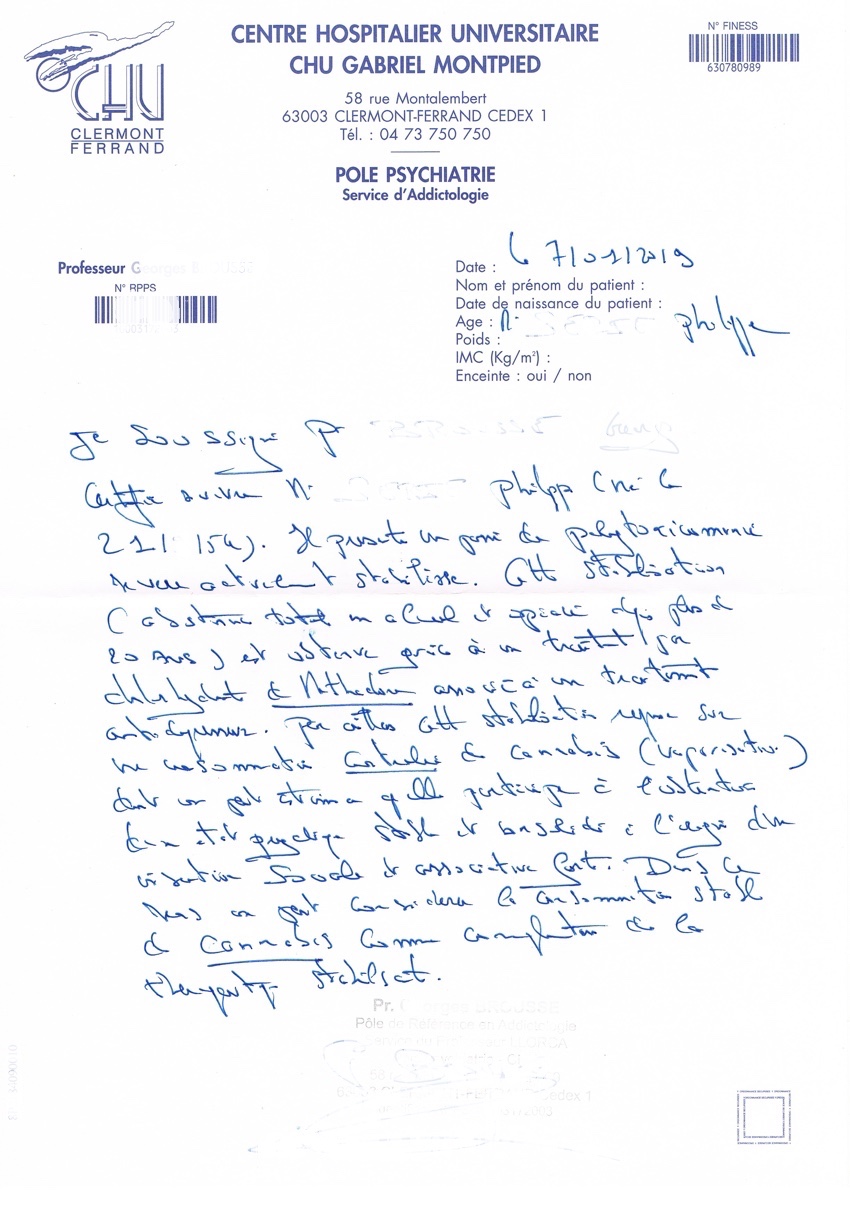 CENTRE HOSPITALIER UNIVERSITAIRE
CHU GABRIEL MONTPIED
N° FINESS
630780989
CHU
CLERMONT
FERRAND
58 rue Montalembert
63003 CLERMONT-FERRAND CEDEX 1
Tél. : 04 73 750 750
POLE PSYCHIATRIE
Service d'Addictologie
Professeur
N° RPPS
Date : le 7/01/2019
Nom et prénom du patient :
Date de naissance du patient :
Age : philippe
Poids :
IMC (Kg/m²) :
Enceinte : oui / non
Je soussigné Pr
Certifie suivre Mr philippe (né le
). Il présente un de polytoxicomanie
actuellement stabilisée. Cette stabilisation
(abstinence totale en alcool et opiacé depuis plus de
20 ans) est obtenue grâce à un traitement par
chlorhydrate de Méthadone associé à un traitement
antidépresseur. Par ailleurs cette stabilisation repose sur
une consommation contrôlée de cannabis (vaporisation)
dont on peut estimer qu'elle participe à l'obtention
d'un état psychique stable et à d'une
sociale et associative forte. Dans ce
on peut considérer la consommation stable
de cannabis comme de la
thérapeutique
Pôle de Référence en Addictologie